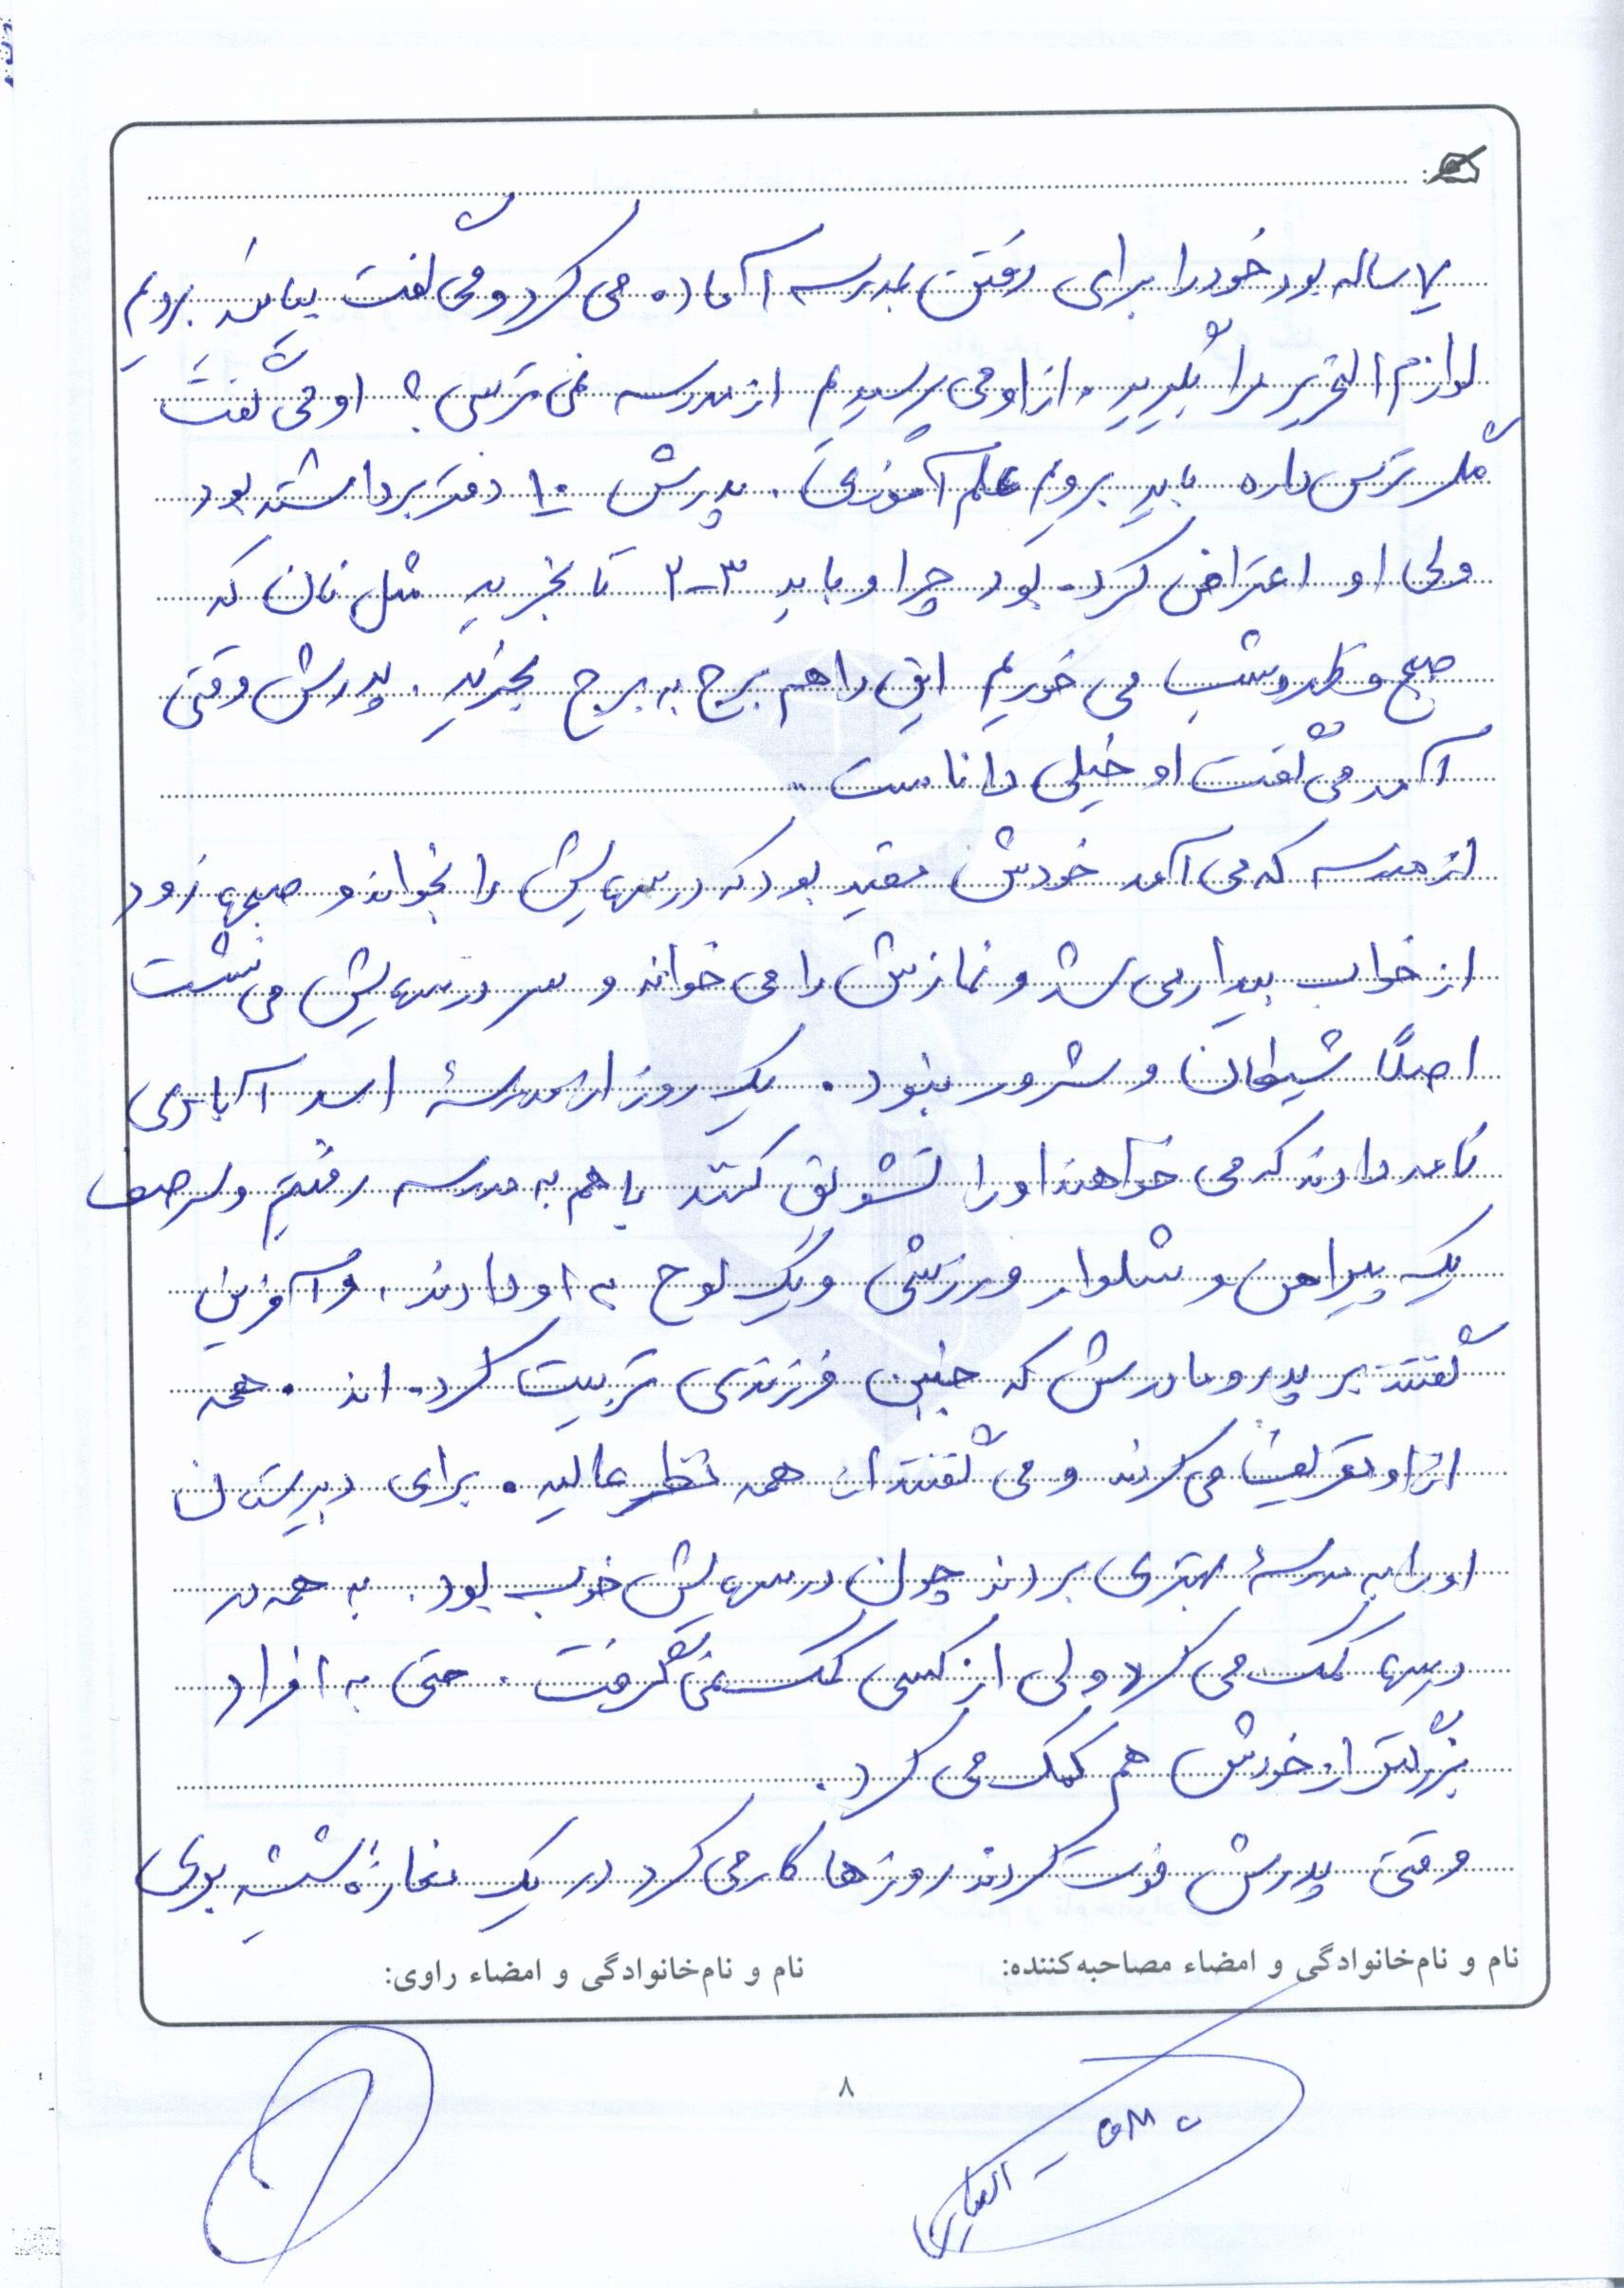 ۷ ساله بود خود را برای رفتن بمدرسه آماده می کرد و می گفت بیائید برویم
لوازم التحریر مرا بگیرید. از او می پرسیدیم از مدرسه نمی ترسی؟ او می گفت
مگر ترس داره باید برویم علم آموزی. پدرش ۱۰ دفتر برداشته بود
ولی او اعتراض کرده بود چرا و باید ۳-۲ تا بخرید مثل نان که
صبح و ظهر و شب می خوریم این را هم برج به برج بخرید. پدرش وقتی
آمد می گفت او خیلی داناست.
از مدرسه که می آمد خودش مقید بود که درسهایش را بخواند و صبحها زود
از خواب بیدار می شد و نمازش را می خواند و سر درسهایش می نشست
اصلاً شیطان و شرور نبود. یک روز از مدرسهٔ اسد آبادی
نامه دادند که می خواهند او را تشویق کنند با هم به مدرسه رفتیم و سر صف
یک پیراهن و شلوار ورزشی و یک لوح به او دادند. و آفرین
گفتند بر پدر و مادرش که چنین فرزندی تربیت کرده اند. همه
از او تعریف می کردند و می گفتند از همه نظر عالیه. برای دبیرستان
او را به مدرسهٔ بهتری بردند چون درسهایش خوب بود. به همه در
درسها کمک می کرد ولی از کسی کمک نمی گرفت. حتی به افراد
بزرگتر از خودش هم کمک می کرد.
وقتی پدرش فوت کردند روزها کار می کرد در یک مغازهٔ شیشه بری
نام و نام‌خانوادگی و امضاء مصاحبه‌کننده: نام و نام‌خانوادگی و امضاء راوی:
۸